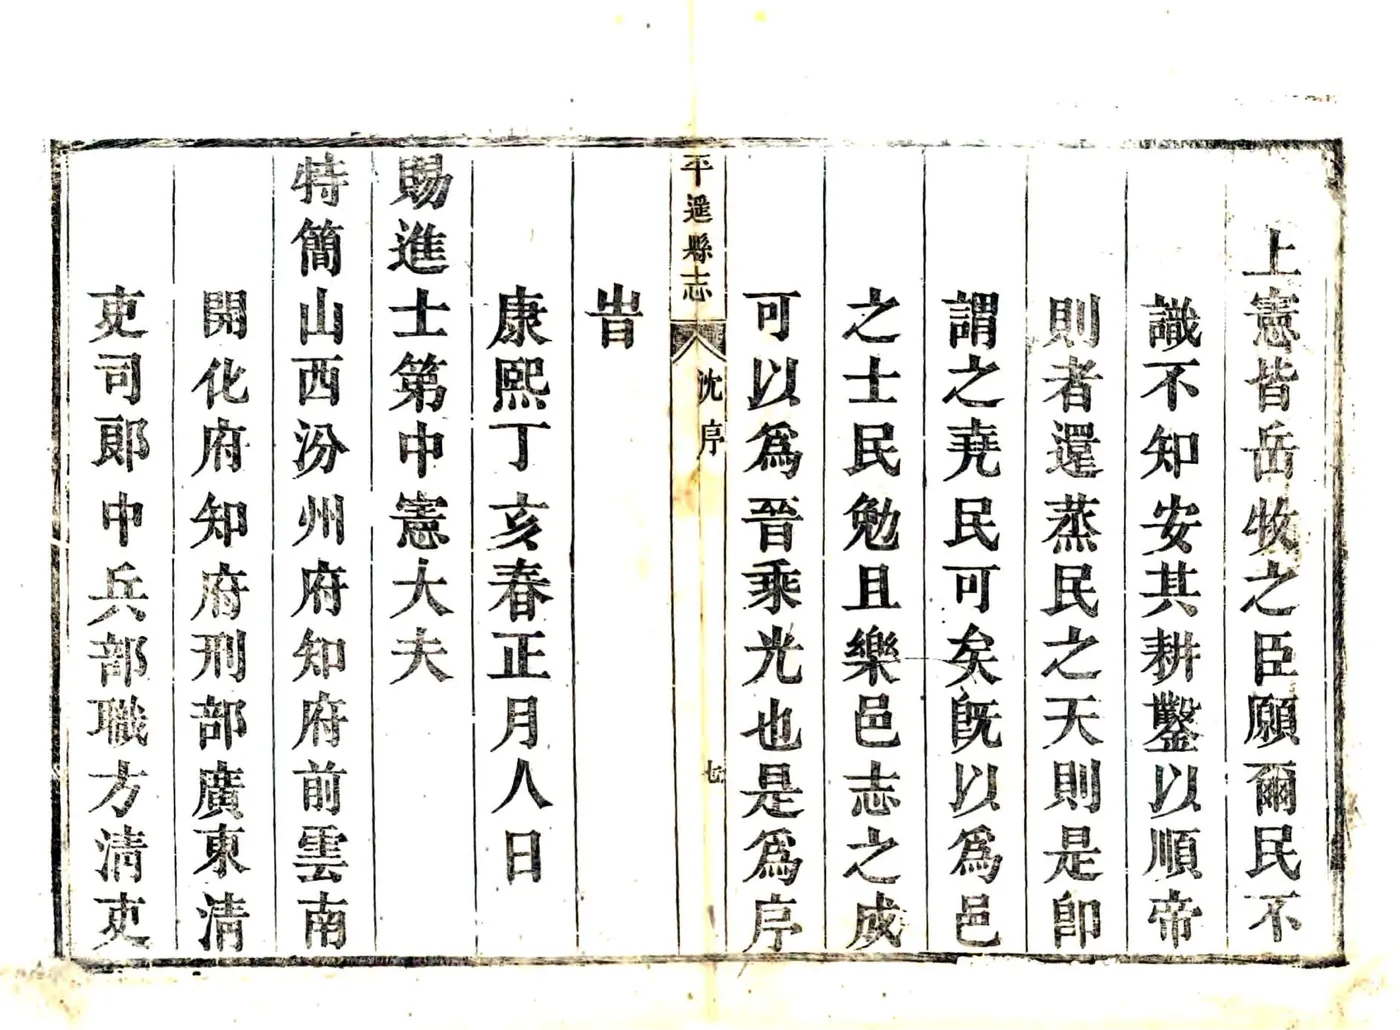 上憲皆岳牧之臣願爾民不
識不知安其耕鑿以順帝
則者還蒸民之天則是卽
謂之堯民可矣旣以爲邑
之士民勉且樂邑志之成
可以爲晉乘光也是爲序
平遥縣志
沈序
七
旹
康熙丁亥春正月人日
賜進士第中憲大夫
特簡山西汾州府知府前雲南
開化府知府刑部廣東清
吏司郎中兵部職方清吏